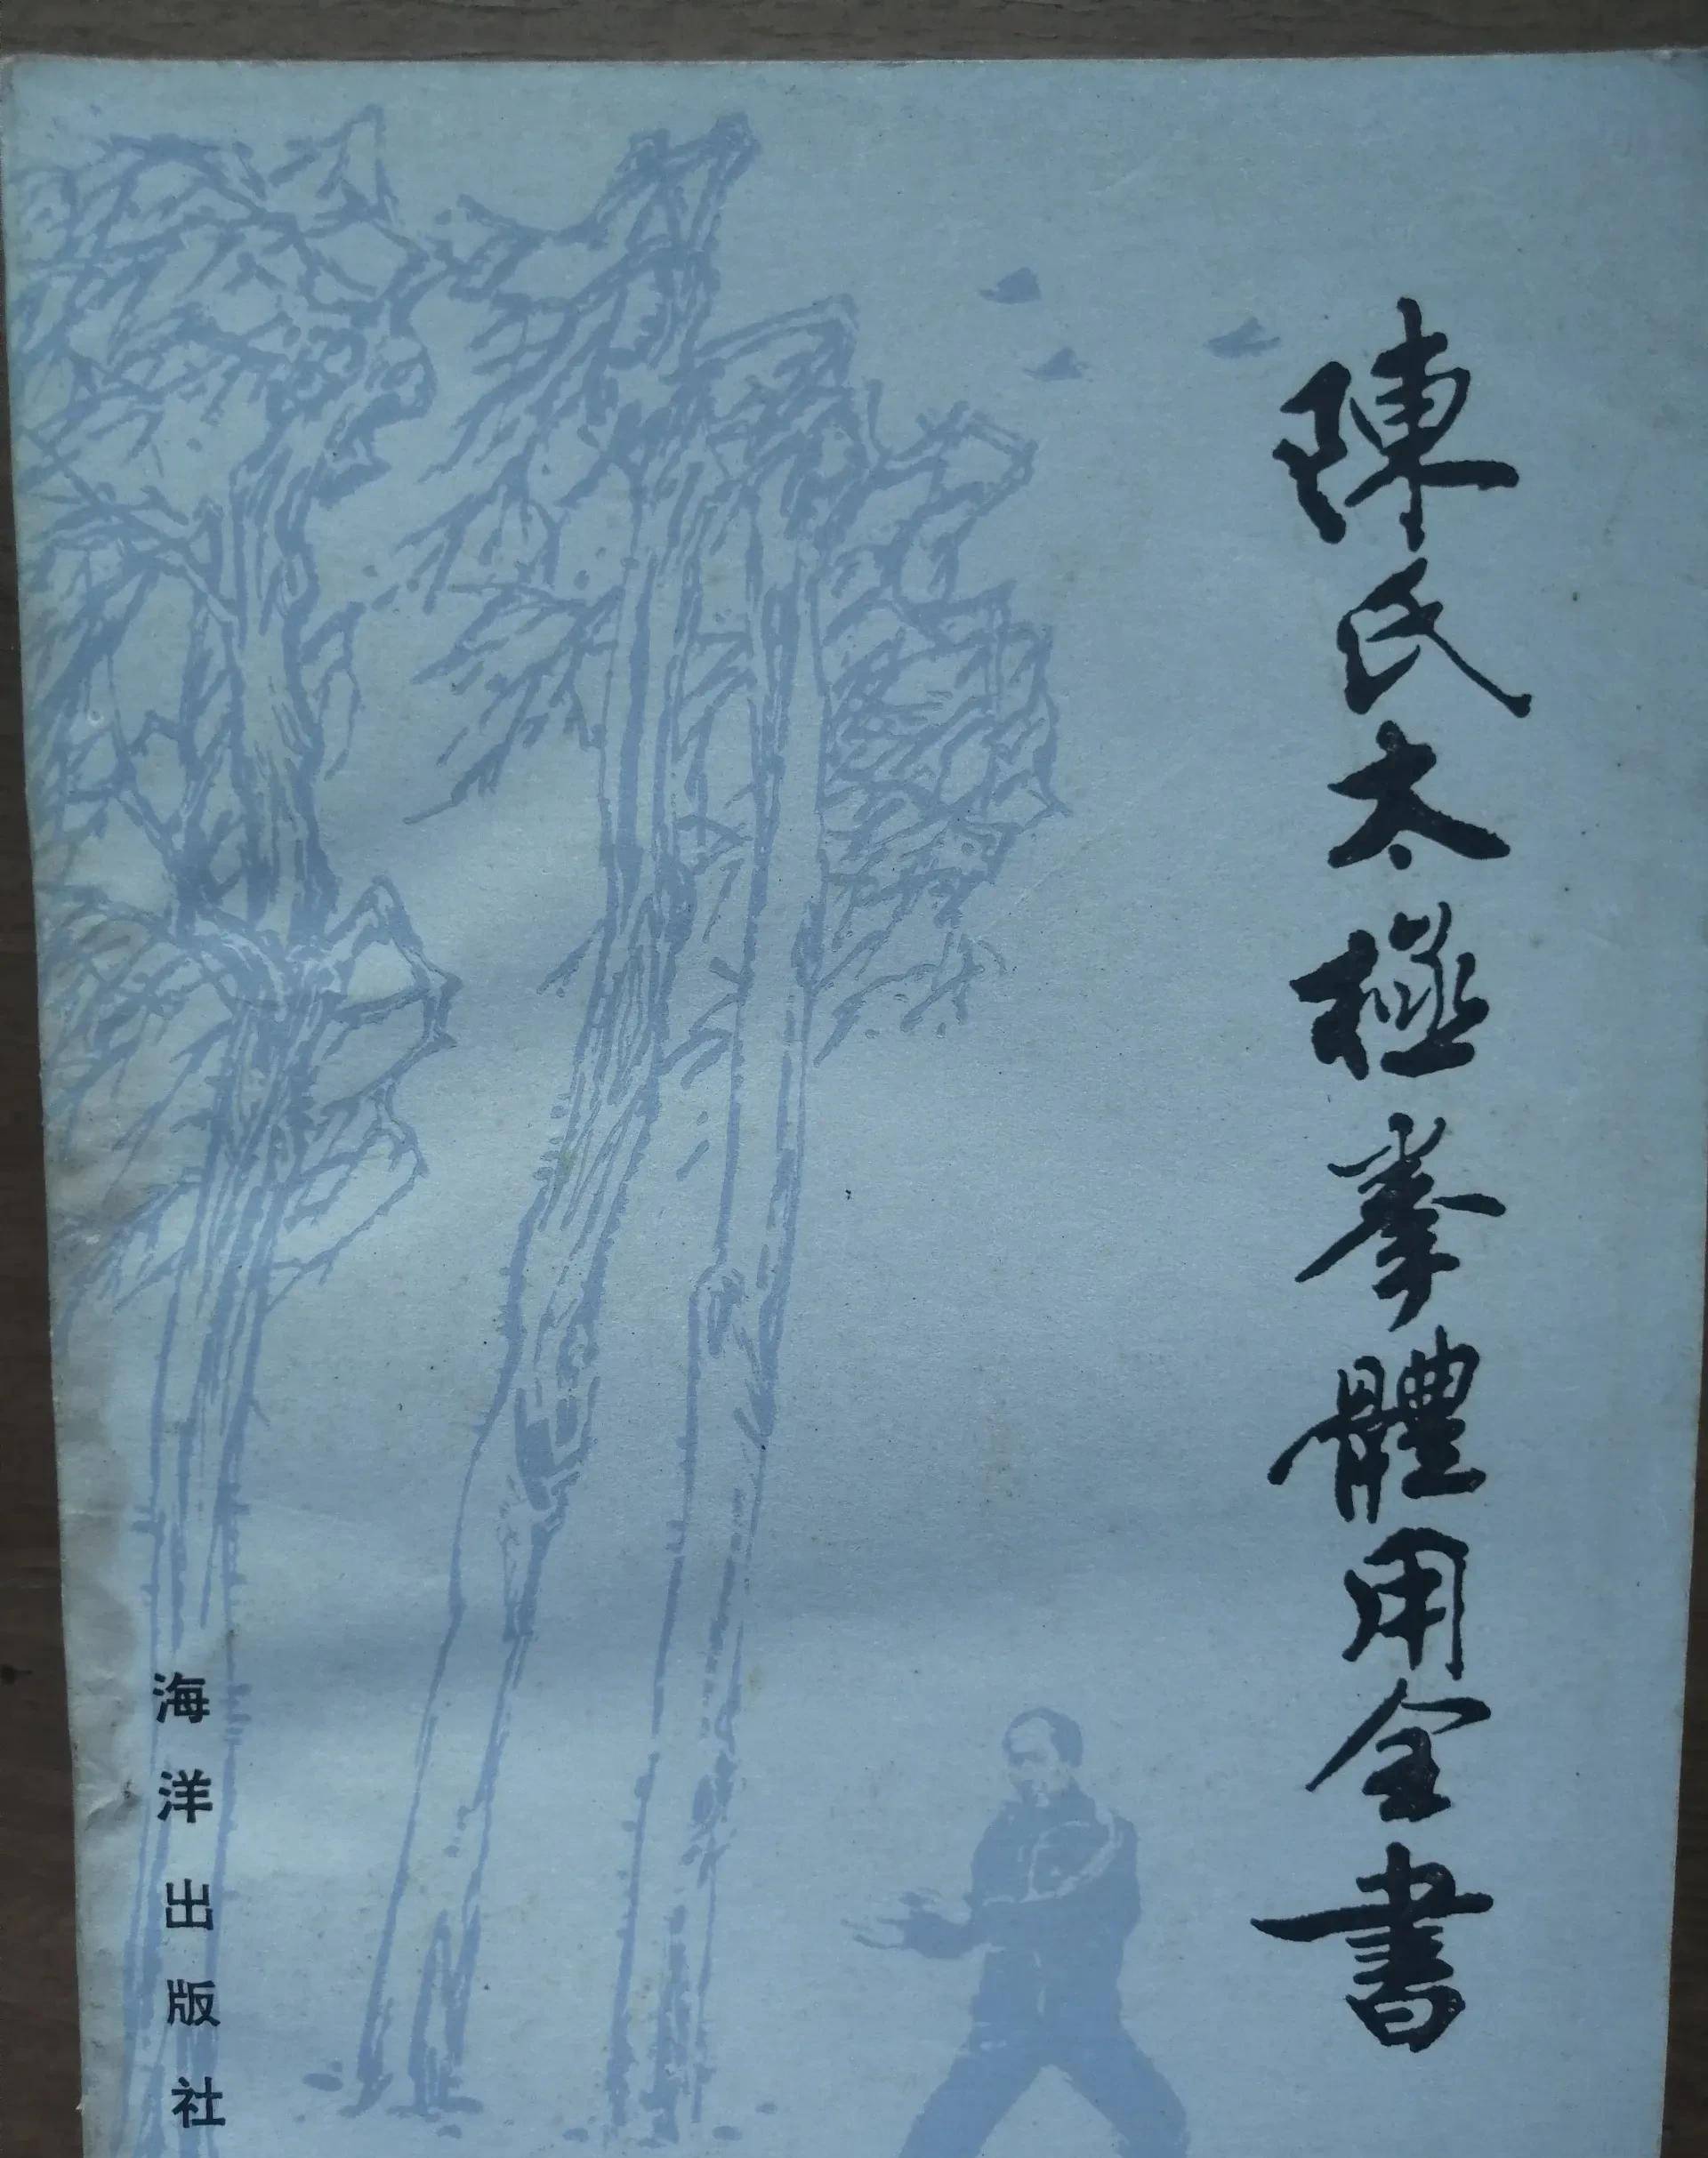 陳氏太極拳體用全書
海洋出版社